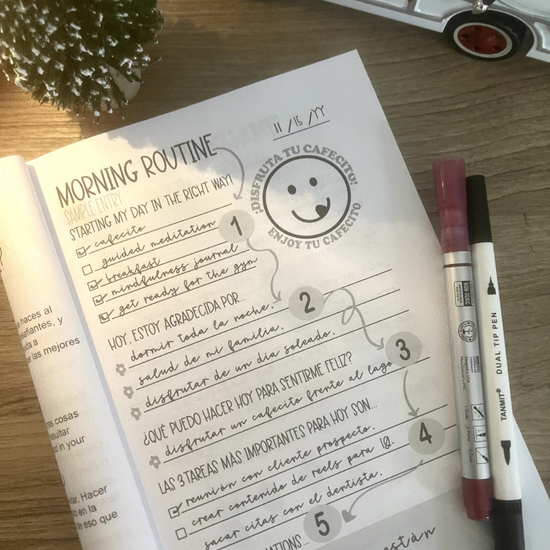 11/15/YY
MORNING ROUTINE
SAMPLE ENTRY
¡DISFRUTA TU CAFECITO!
ENJOY TU CAFECITO
STARTING MY DAY IN THE RIGHT WAY!
cafecito
1
guided meditation
breakfast
mindfulness journal
get ready for the gym
HOY, ESTOY AGRADECIDA POR...
2
dormir toda la noche.
salud de mi familia.
disfrutar de un dia soleado.
3
¿QUÉ PUEDO HACER HOY PARA SENTIRME FELIZ?
disfrutar un cafecito frente al lago
LAS 3 TAREAS MAS IMPORTANTES PARA HOY SON...
4
reunión con cliente prospecto.
crear contenido de reels para IG.
sacar citas con el dentista.
5
están
haces al
y
a
las mejores
cosas
in your
Hacer
en la
eso que
TANMIT® DUAL TIP PEN